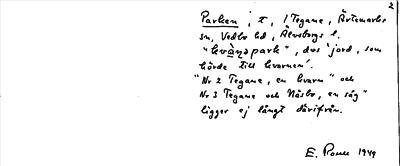 2
Parken, t, 1 Tegane, Ärtemarks
sn, Vedbo hd, Älvsborgs l.
"kvarnpark", dvs 'jord, som
hörde till kvarnen'.
"Nr 2 Tegane, en kvarn" och
Nr 3 Tegane och Näsbo, en såg"
ligger ej långt därifrån.
E. 1949